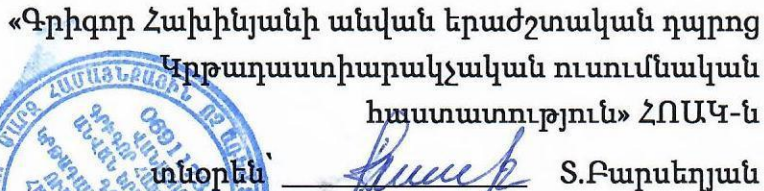 «Գրիգոր Հախինյանի անվան երաժշտական դպրոց
Կրթադաստիարակչական ուսումնական
հաստատություն» ՀՈԱԿ-ն
տնօրեն՝ Տ.Բարսեղյան
ՀԱՄԱՅՆՔԱՅԻՆ ՈՉ
ԳՐԻԳՈՐ
ԱՆՎԱՆ